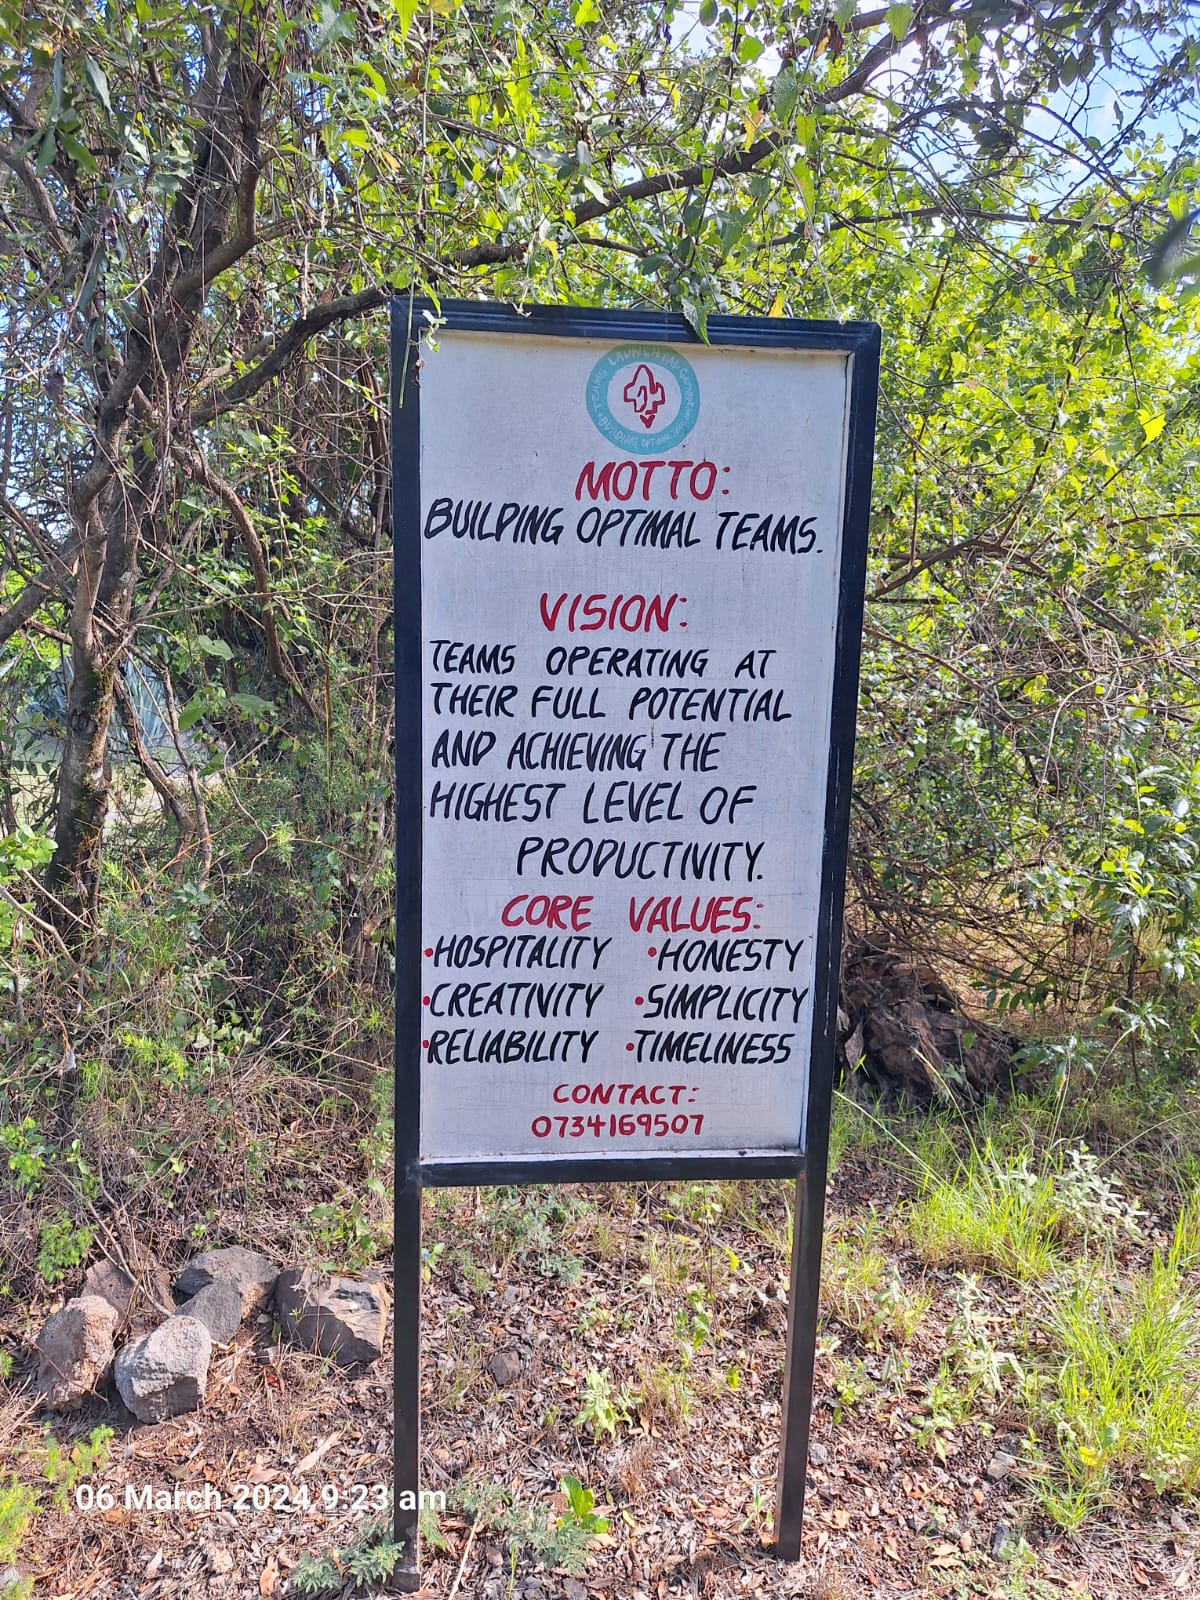 TEAMS LAUNCH PAD
BUILDING OPTIMAL TEAMS
MOTTO:
BUILDING OPTIMAL TEAMS.
VISION:
TEAMS OPERATING AT
THEIR FULL POTENTIAL
AND ACHIEVING THE
HIGHEST LEVEL OF
PRODUCTIVITY.
CORE VALUES:
•HOSPITALITY •HONESTY
•CREATIVITY •SIMPLICITY
•RELIABILITY •TIMELINESS
CONTACT:
0734169507
06 March 2024, 9:23 am